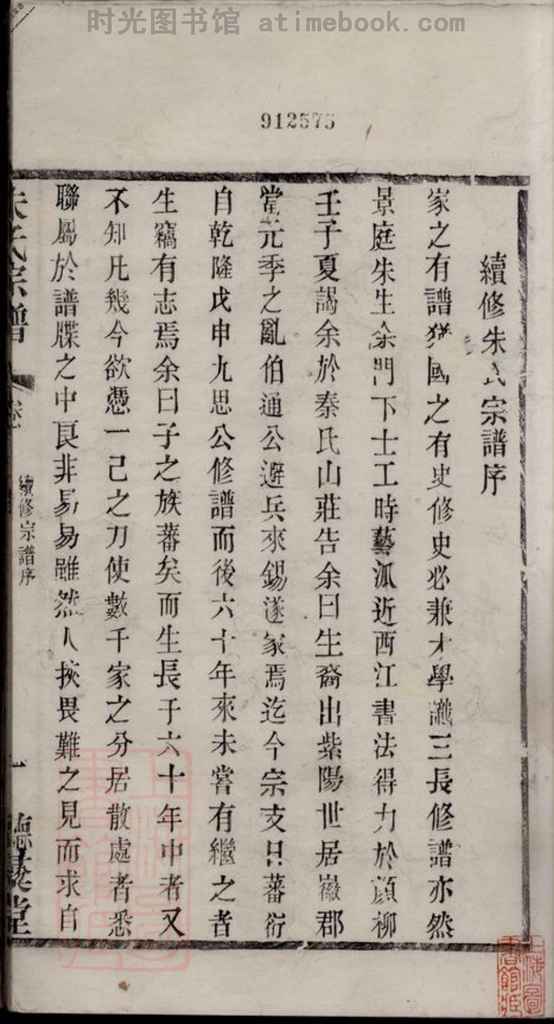 时光图书馆 atimebook.com
912575
續修朱氏宗譜序
家之有譜猶國之有史修史必兼才學識三長修譜亦然
景庭朱生余門下士工時藝派近西江書法得力於顔柳
壬子夏謁余於秦氏山莊告余曰生裔出紫陽世居徽郡
當元季之亂伯通公避兵來錫遂家焉迄今宗支日蕃衍
自乾隆戊申九思公修譜而後六十年來未嘗有繼之者
生竊有志焉余曰子之族蕃矣而生長于六十年中者又
不知凡幾今欲憑一己之力使數千家之分居散處者悉
聯屬於譜牒之中良非易易雖然人挾畏難之見而求自
朱氏宗譜
卷
續修宗譜序
一